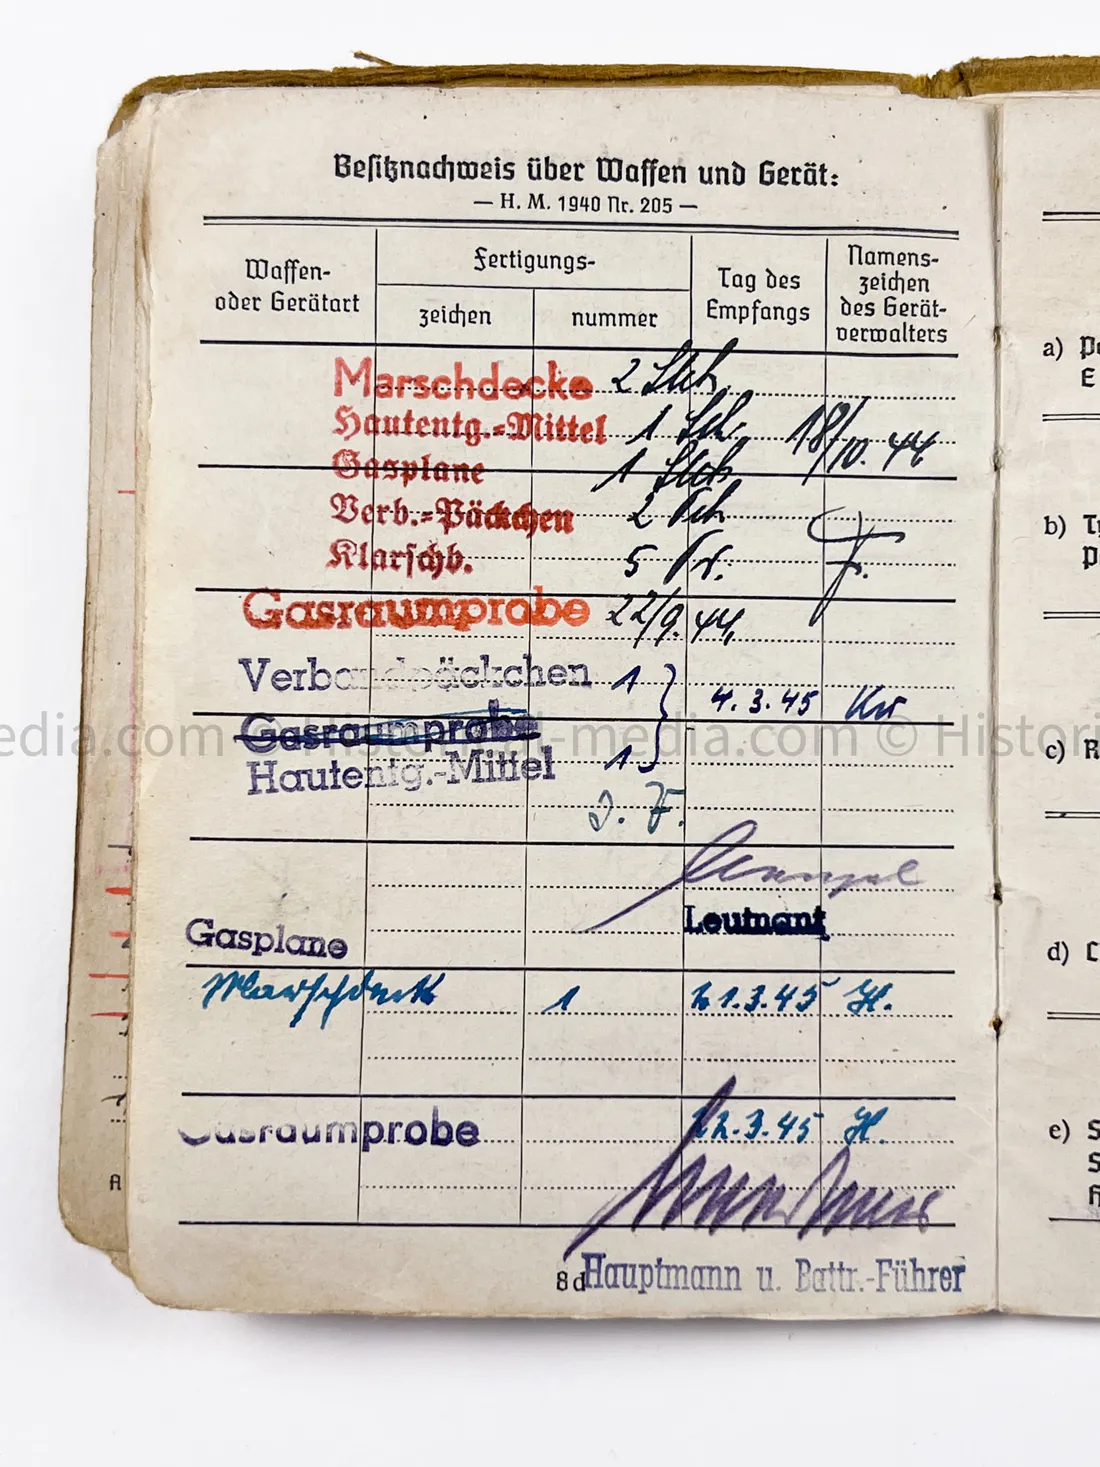 Besitznachweis über Waffen und Gerät:
— H. M. 1940 Nr. 205 —
Waffen- oder Gerätart
Fertigungs-
zeichen
nummer
Tag des Empfangs
Namens-zeichen des Gerät-verwalters
Marschdecke 2 Stck.
Hautentg.-Mittel 1 Stck. 18/10. 44
Gasplane 1 Stck
Verb.-Päckchen 2 Stck
Klarschb. 5 Pr.
Gasraumprobe 22/9. 44.
Verbandpäckchen 1
4. 3. 45
Gasraumprobe
Hautentg.-Mittel 1
Leutnant
Gasplane
Marschdeck 1 21.3.45 H.
Gasraumprobe 22.3.45 H.
8d
Hauptmann u. Battr.-Führer
a)
b)
c)
d)
e)
edia.com © Historical-media.com © Histori